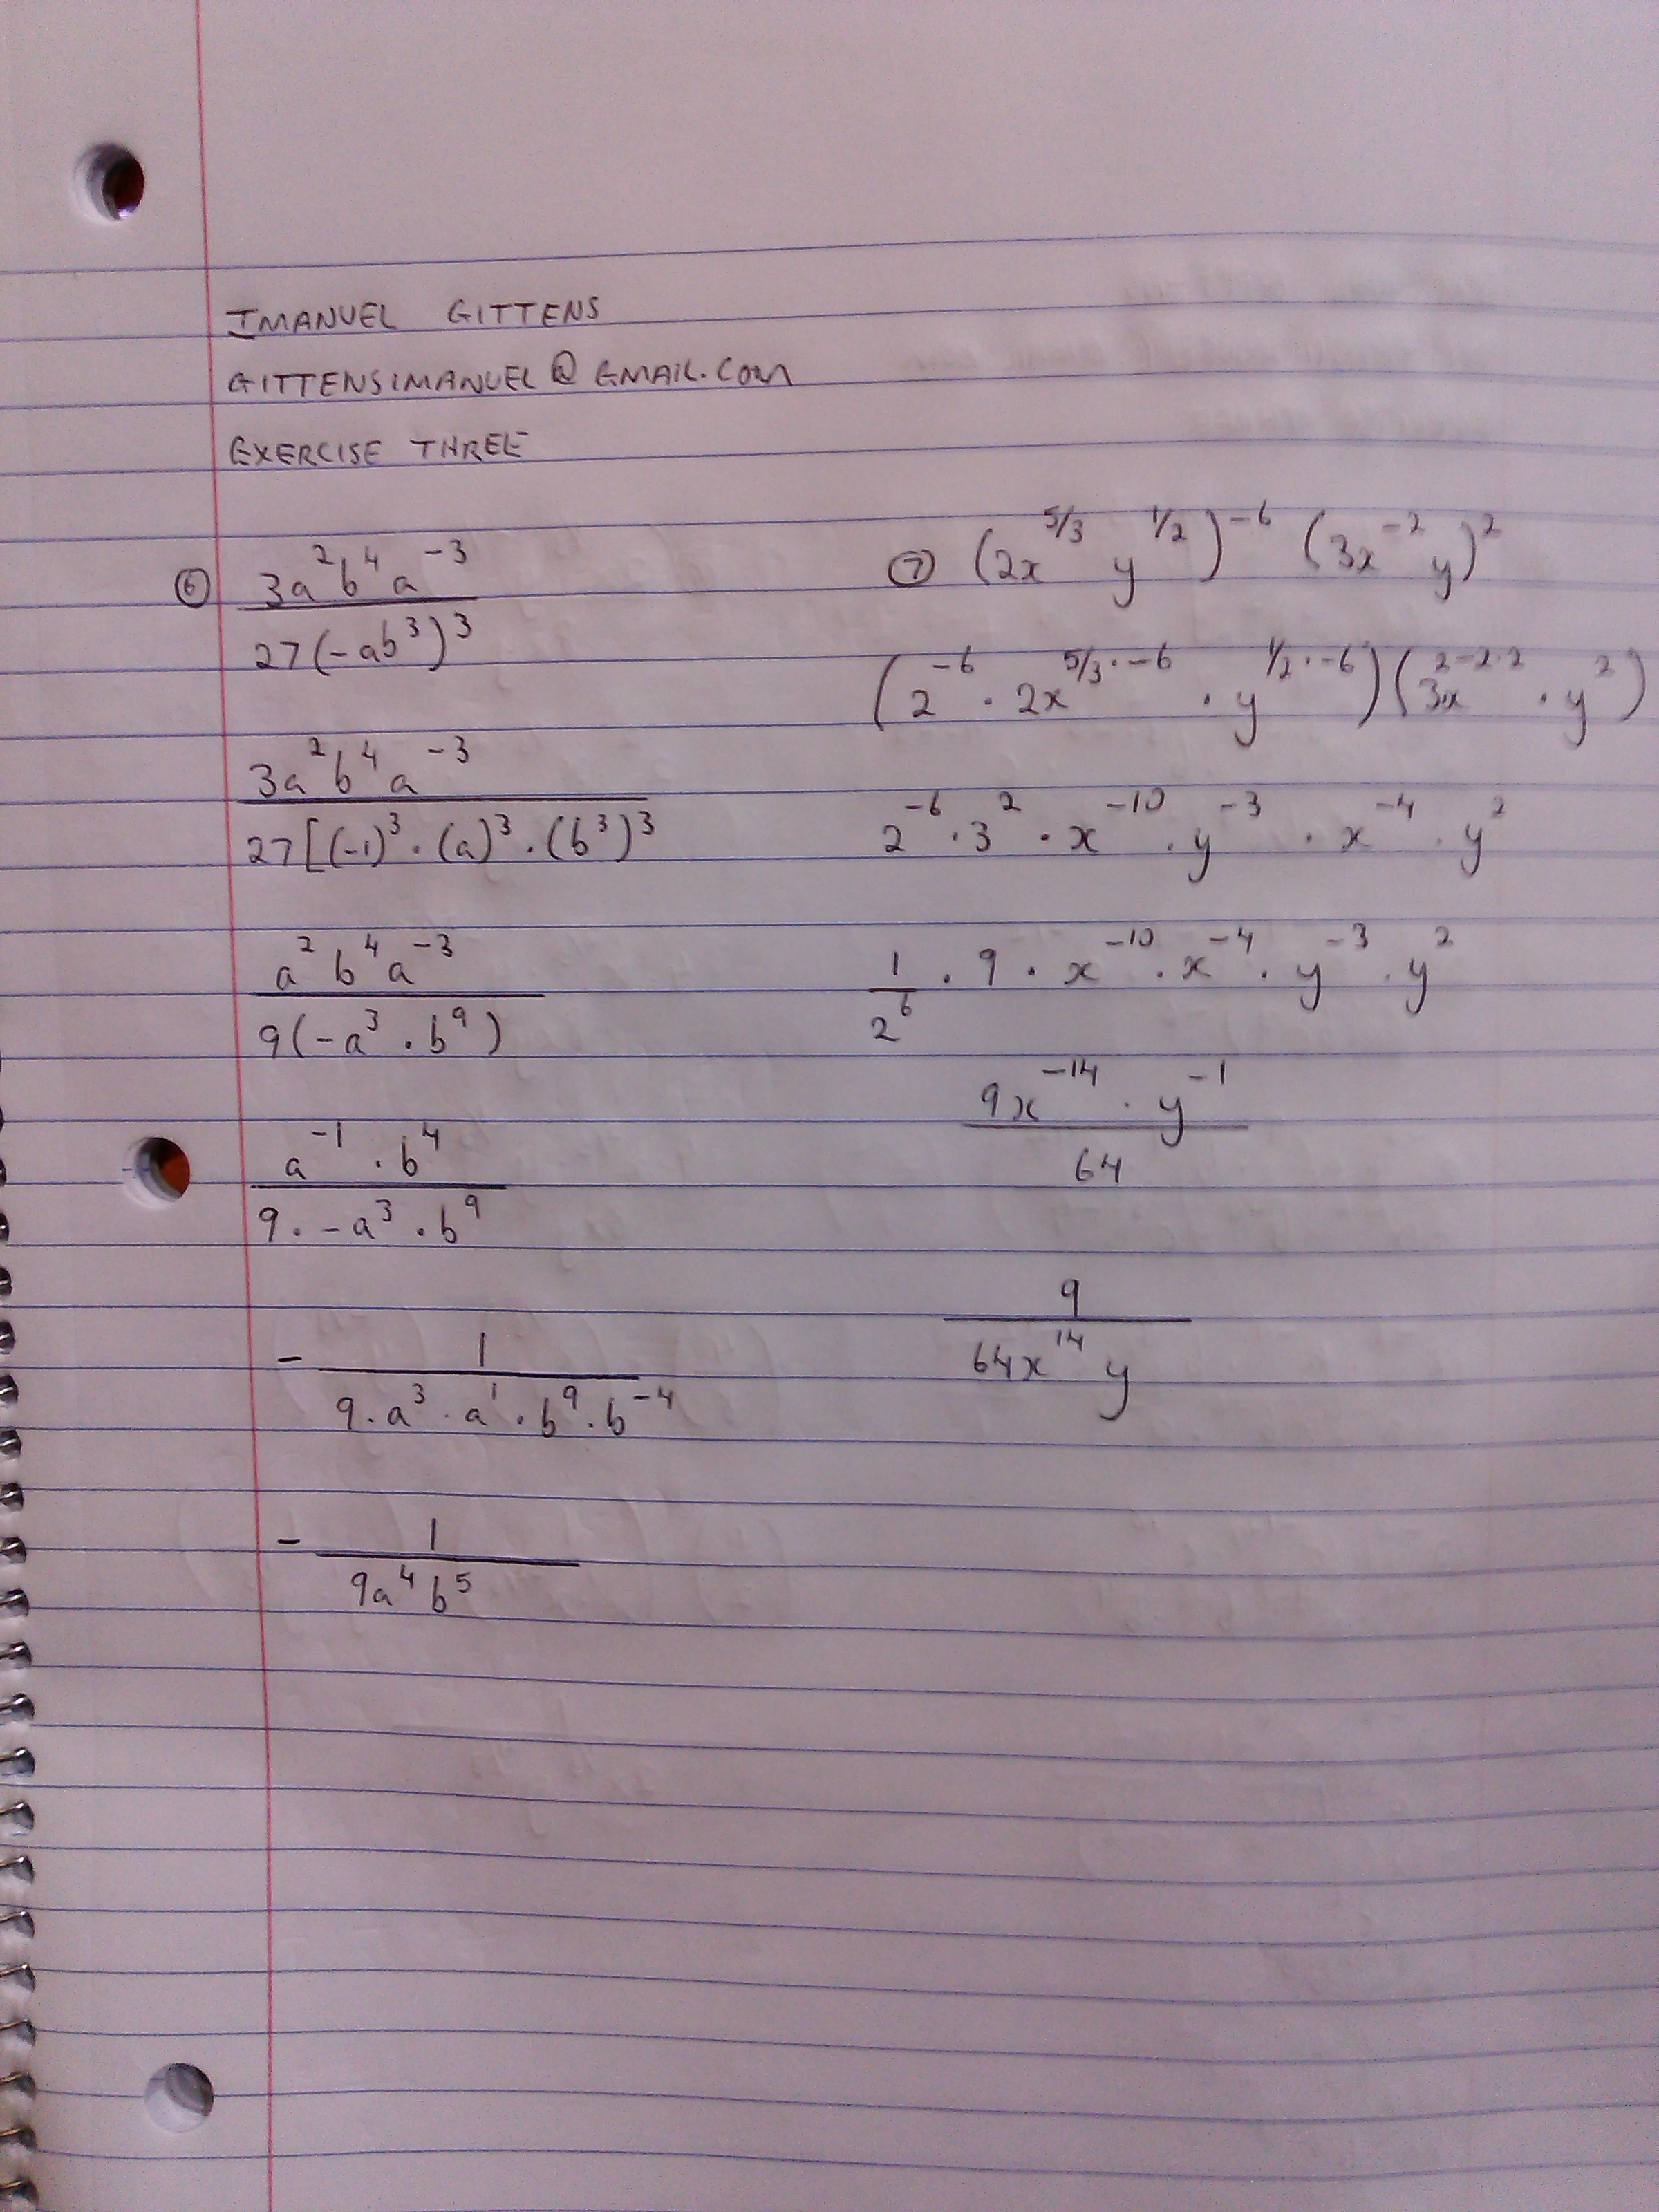 IMANUEL GITTENS
GITTENSIMANUEL@GMAIL.COM
EXERCISE THREE
⑥ 3a²b⁴a⁻³
27(-ab³)³
3a²b⁴a⁻³
27[(-1)³·(a)³·(b³)³
a²b⁴a⁻³
9(-a³·b⁹)
a⁻¹·b⁴
9·-a³·b⁹
- 1
9·a³·a¹·b⁹·b⁻⁴
- 1
9a⁴b⁵
⑦ (2x^5/3 y^1/2)⁻⁶ (3x⁻²y)²
(2⁻⁶·2x^5/3·-6·y^1/2·-6)(3²·x^-2·2·y²)
2⁻⁶·3²·x⁻¹⁰·y⁻³·x⁻⁴·y²
1/2⁶·9·x⁻¹⁰·x⁻⁴·y⁻³·y²
9x⁻¹⁴·y⁻¹
64
9
64x¹⁴y